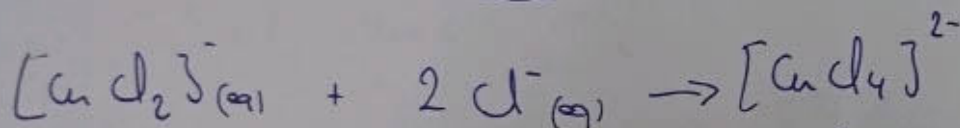 [CuCl₂]⁻(aq) + 2 Cl⁻(aq) → [CuCl₄]²⁻